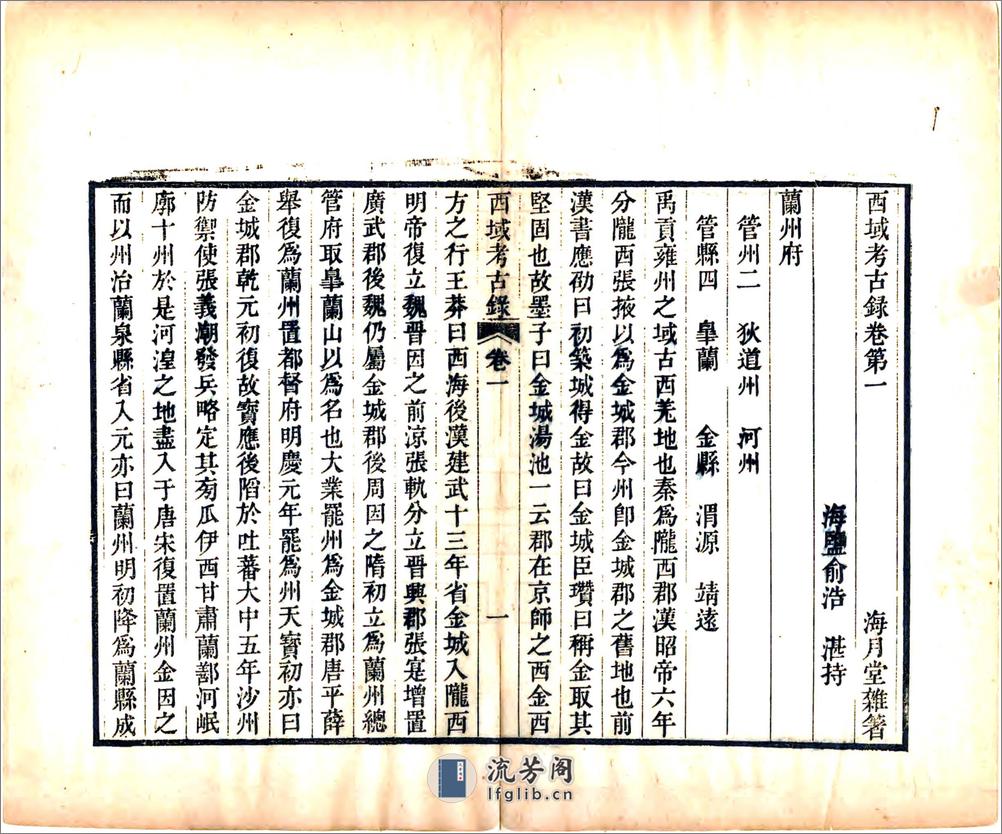 西域考古錄卷第一 海月堂雜著
海鹽俞浩 湛持
蘭州府
管州二 狄道州 河州
管縣四 皐蘭 金縣 渭源 靖遠
禹貢雍州之域古西羌地也秦爲隴西郡漢昭帝六年
分隴西張掖以爲金城郡今州卽金城郡之舊地也前
漢書應劭曰初築城得金故曰金城臣瓚曰稱金取其
堅固也故墨子曰金城湯池一云郡在京師之西金西
西域考古錄 卷一 一
方之行王莽曰西海後漢建武十三年省金城入隴西
明帝復立魏晉因之前涼張軌分立晉興郡張寔增置
廣武郡後魏仍屬金城郡後周因之隋初立爲蘭州總
管府取皐蘭山以爲名也大業罷州爲金城郡唐平薛
舉復爲蘭州置都督府明慶元年罷爲州天寶初亦曰
金城郡乾元初復故寶應後陷於吐蕃大中五年沙州
防禦使張義潮發兵略定其旁瓜伊西甘肅蘭鄯河岷
廓十州於是河湟之地盡入于唐宋復置蘭州金因之
而以州治蘭泉縣省入元亦曰蘭州明初降爲蘭縣成
流芳阁
lfglib.cn